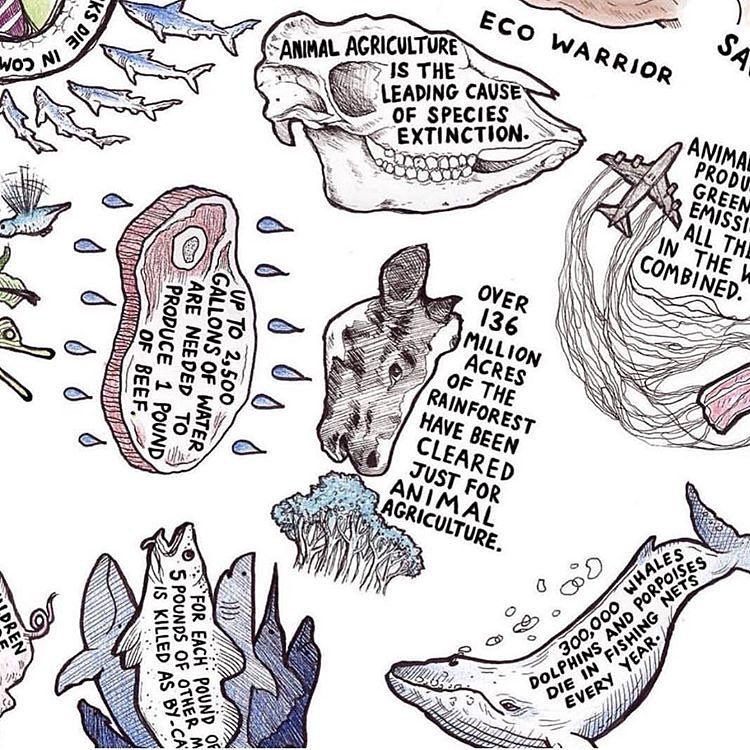 KS DIE IN COM
ECO WARRIOR
SA
ANIMAL AGRICULTURE
IS THE
LEADING CAUSE
OF SPECIES
EXTINCTION.
ANIMA
PRODU
GREEN
EMISSI
ALL THE
IN THE W
COMBINED.
UP TO 2,500
GALLONS OF WATER
ARE NEEDED TO
PRODUCE 1 POUND
OF BEEF.
OVER
136
MILLION
ACRES
OF THE
RAINFOREST
HAVE BEEN
CLEARED
JUST FOR
ANIMAL
AGRICULTURE.
FOR EACH POUND OF
5 POUNDS OF OTHER M
IS KILLED AS BY-CA
300,000 WHALES
DOLPHINS AND PORPOISES
DIE IN FISHING NETS
EVERY YEAR.